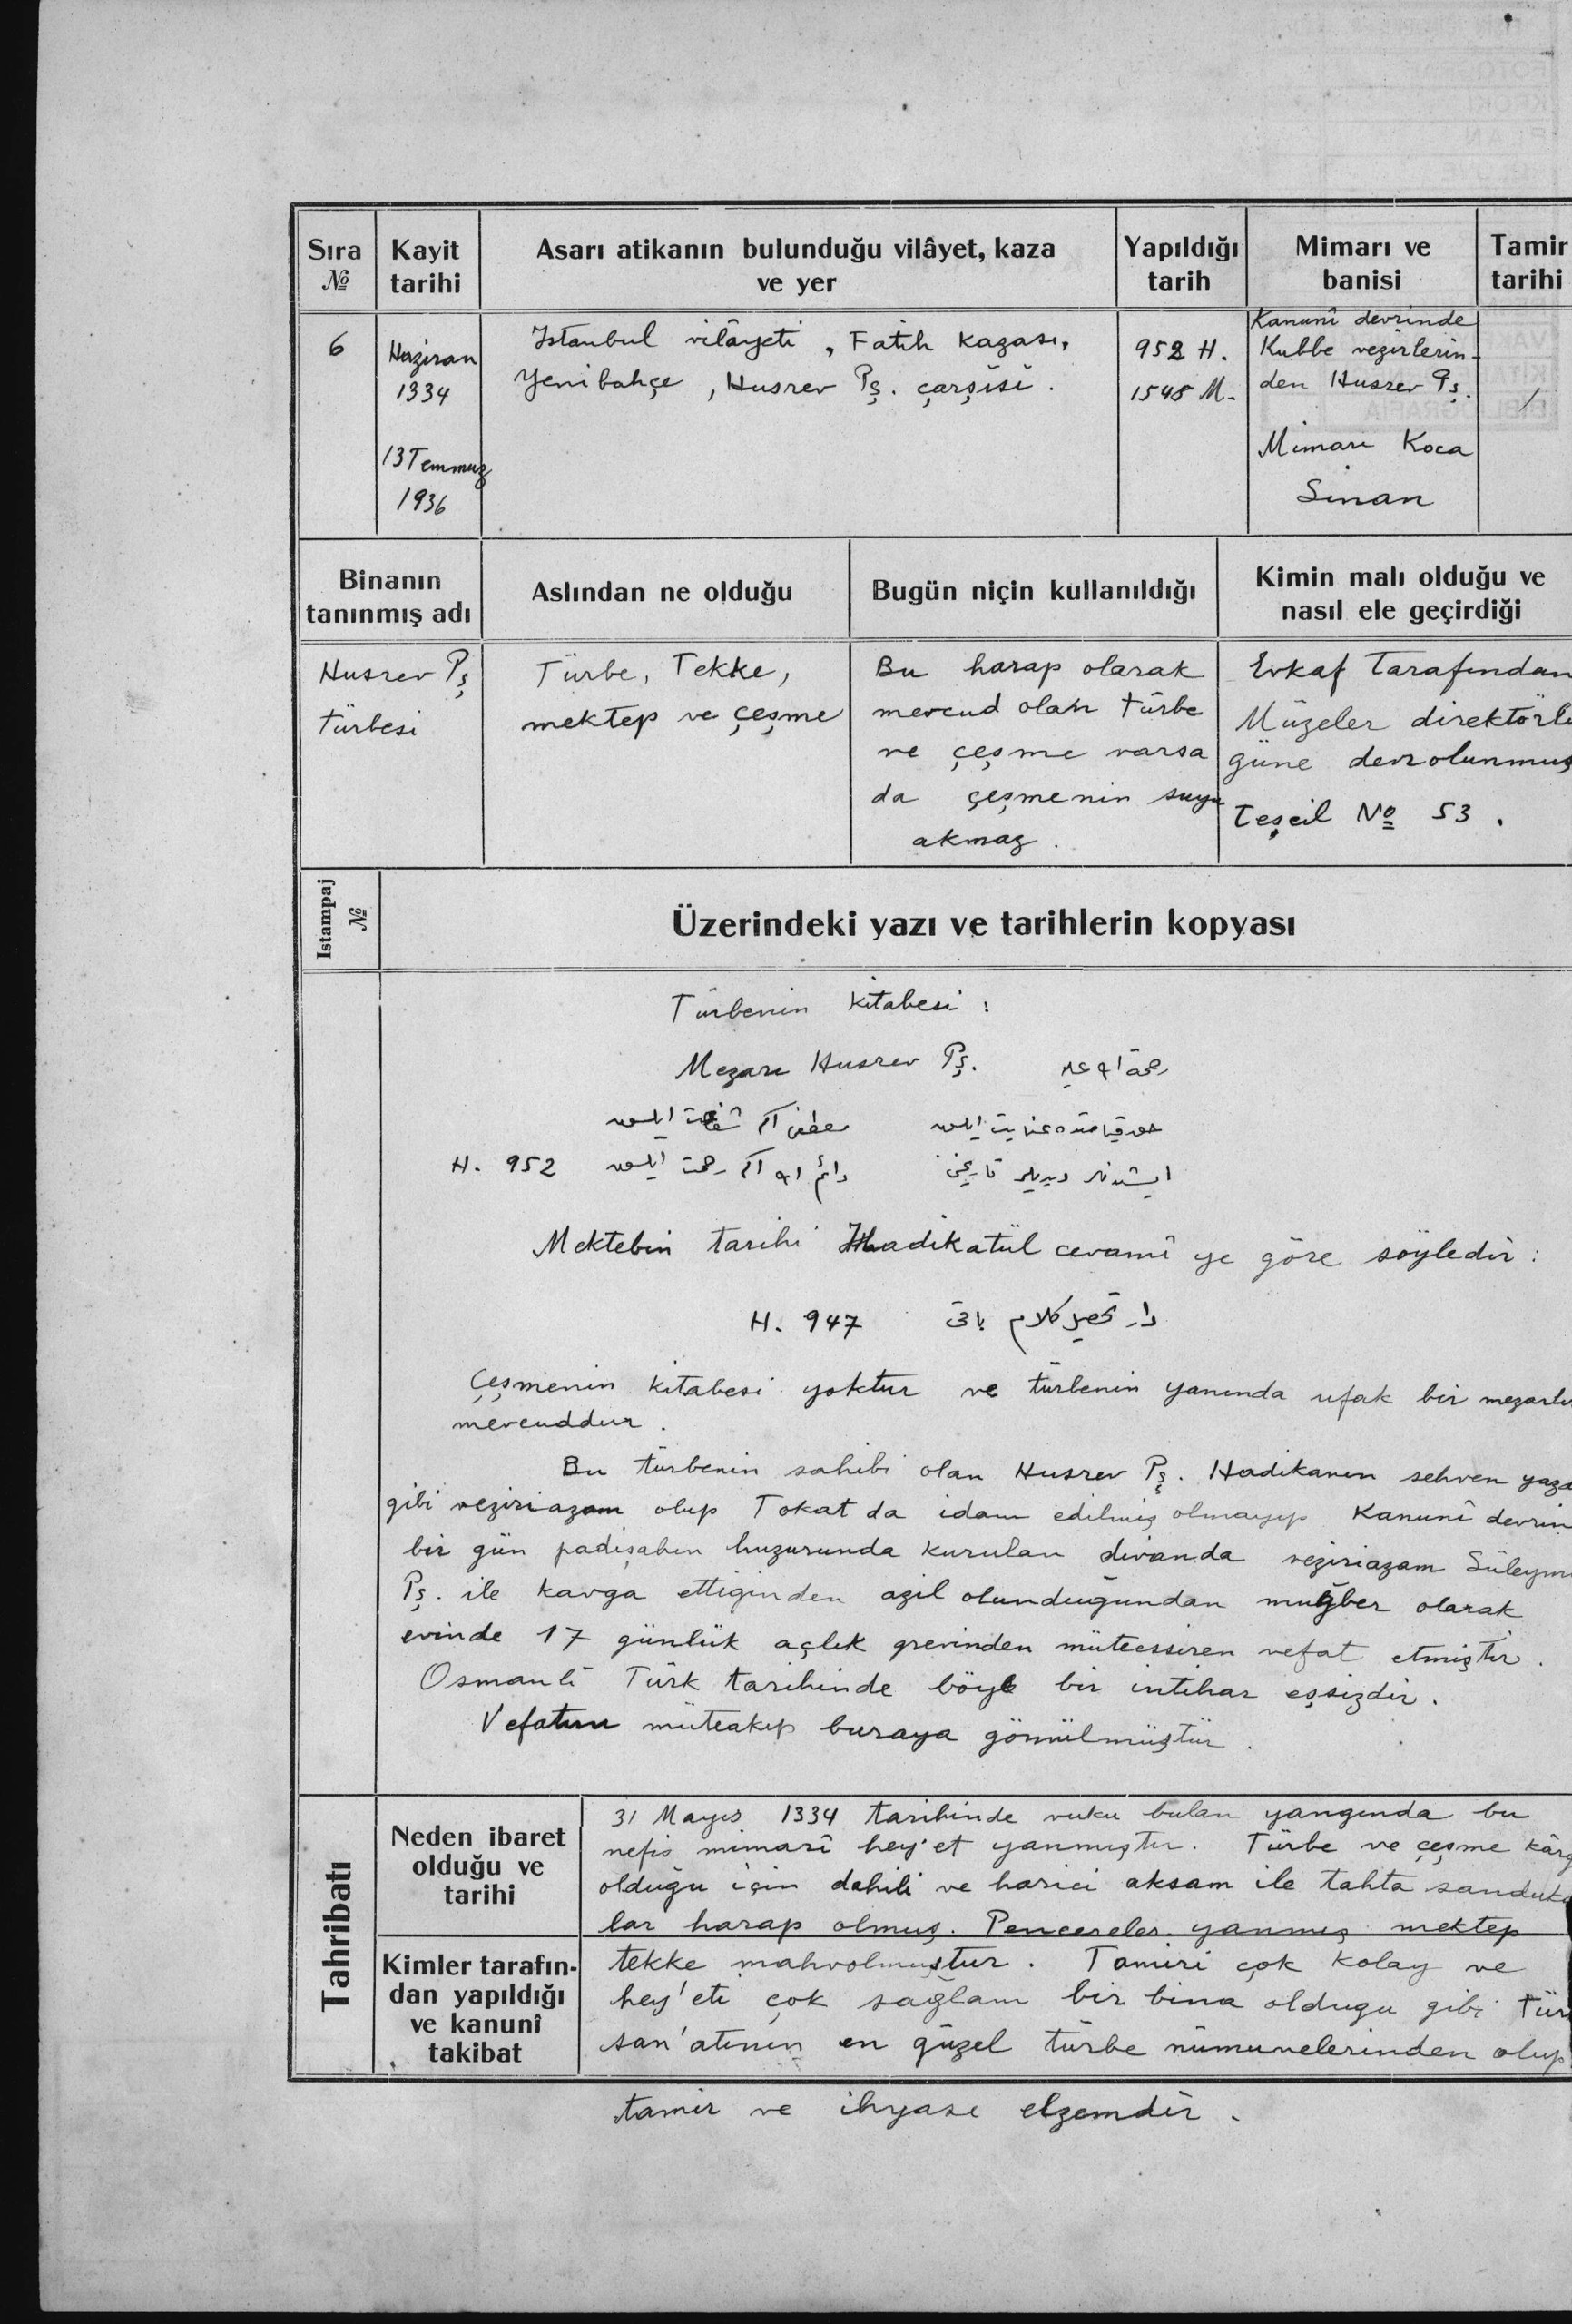 Sıra № Kayit tarihi Asarı atikanın bulunduğu vilâyet, kaza ve yer Yapıldığı tarih Mimarı ve banisi Tamir tarihi
6
Haziran
1334
13 Temmuz
1936
Istanbul vilâyeti, Fatih kazası,
Yenibahçe, Husrev Pş. çarşisi.
952 H.
1545 M.
Kanunî devrinde
Kubbe vezirlerin-
den Husrev Pş.
Mimarı Koca
Sinan
/
Binanın tanınmış adı
Aslından ne olduğu
Bugün niçin kullanıldığı
Kimin malı olduğu ve nasıl ele geçirdiği
Husrev Pş
türbesi
Türbe, Tekke,
mektep ve çeşme
Bu harap olarak
mevcud olan türbe
ve çeşme varsa
da çeşmenin suyu
akmaz.
Evkaf tarafından
Müzeler direktörlü
güne devrolunmuş
Teşcil № 53.
Istampaj №
Üzerindeki yazı ve tarihlerin kopyası
Türbenin kitabesi:
Mezarı Husrev Pş. رحمة الله عليه
حق قیامتده عنایت ایلسون مصطفی اكا شفاعت ایلسون
ایشدنلر دیدیلر تاریخن دائم الله اكا رحمت ایلسون H. 952
Mektebin tarihi Hadikatül cevamî ye göre söyledir:
دار تحصیل كلام باقی H. 947
Çeşmenin kitabesi yoktur ve türbenin yanında ufak bir mezarlı
mevcuddur.
Bu türbenin sahibi olan Husrev Pş. Hadikanın sehven yazd
gibi veziriazam olup Tokat da idam edilmiş olmayıp Kanunî devrin
bir gün padişahın huzurunda kurulan divanda veziriazam Süleym
Pş. ile kavga ettiğinden azil olunduğundan muğber olarak
evinde 17 günlük açlık grevinden müteessiren vefat etmiştir.
Osmanlı Türk tarihinde böyle bir intihar eşsizdir.
Vefatını müteakıp buraya gömülmüştür.
Tahribatı
Neden ibaret olduğu ve tarihi
31 Mayıs 1334 tarihinde vuku bulan yangında bu
nefis mimarî hey'et yanmıştır. Türbe ve çeşme kârg
olduğu için dahili ve harici aksam ile tahta sanduka
lar harap olmuş. Pencereler yanmış mektep
Kimler tarafın-
dan yapıldığı
ve kanunî
takibat
tekke mahvolmuştur. Tamiri çok kolay ve
hey'eti çok sağlam bir bina olduğu gibi Tür
san'atının en güzel türbe nümunelerinden olup
tamir ve ihyası elzemdir.